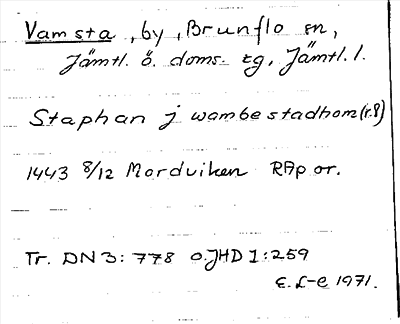 Vamsta, by, Brunflo sn,
Jämtl. ö. doms. tg, Jämtl. l.
Staphan j wambestadhom (r.8)
1443 8/12 Mordviken RAp or.
Tr. DN 3: 778 o. JHD 1:259
E. L-e 1971.